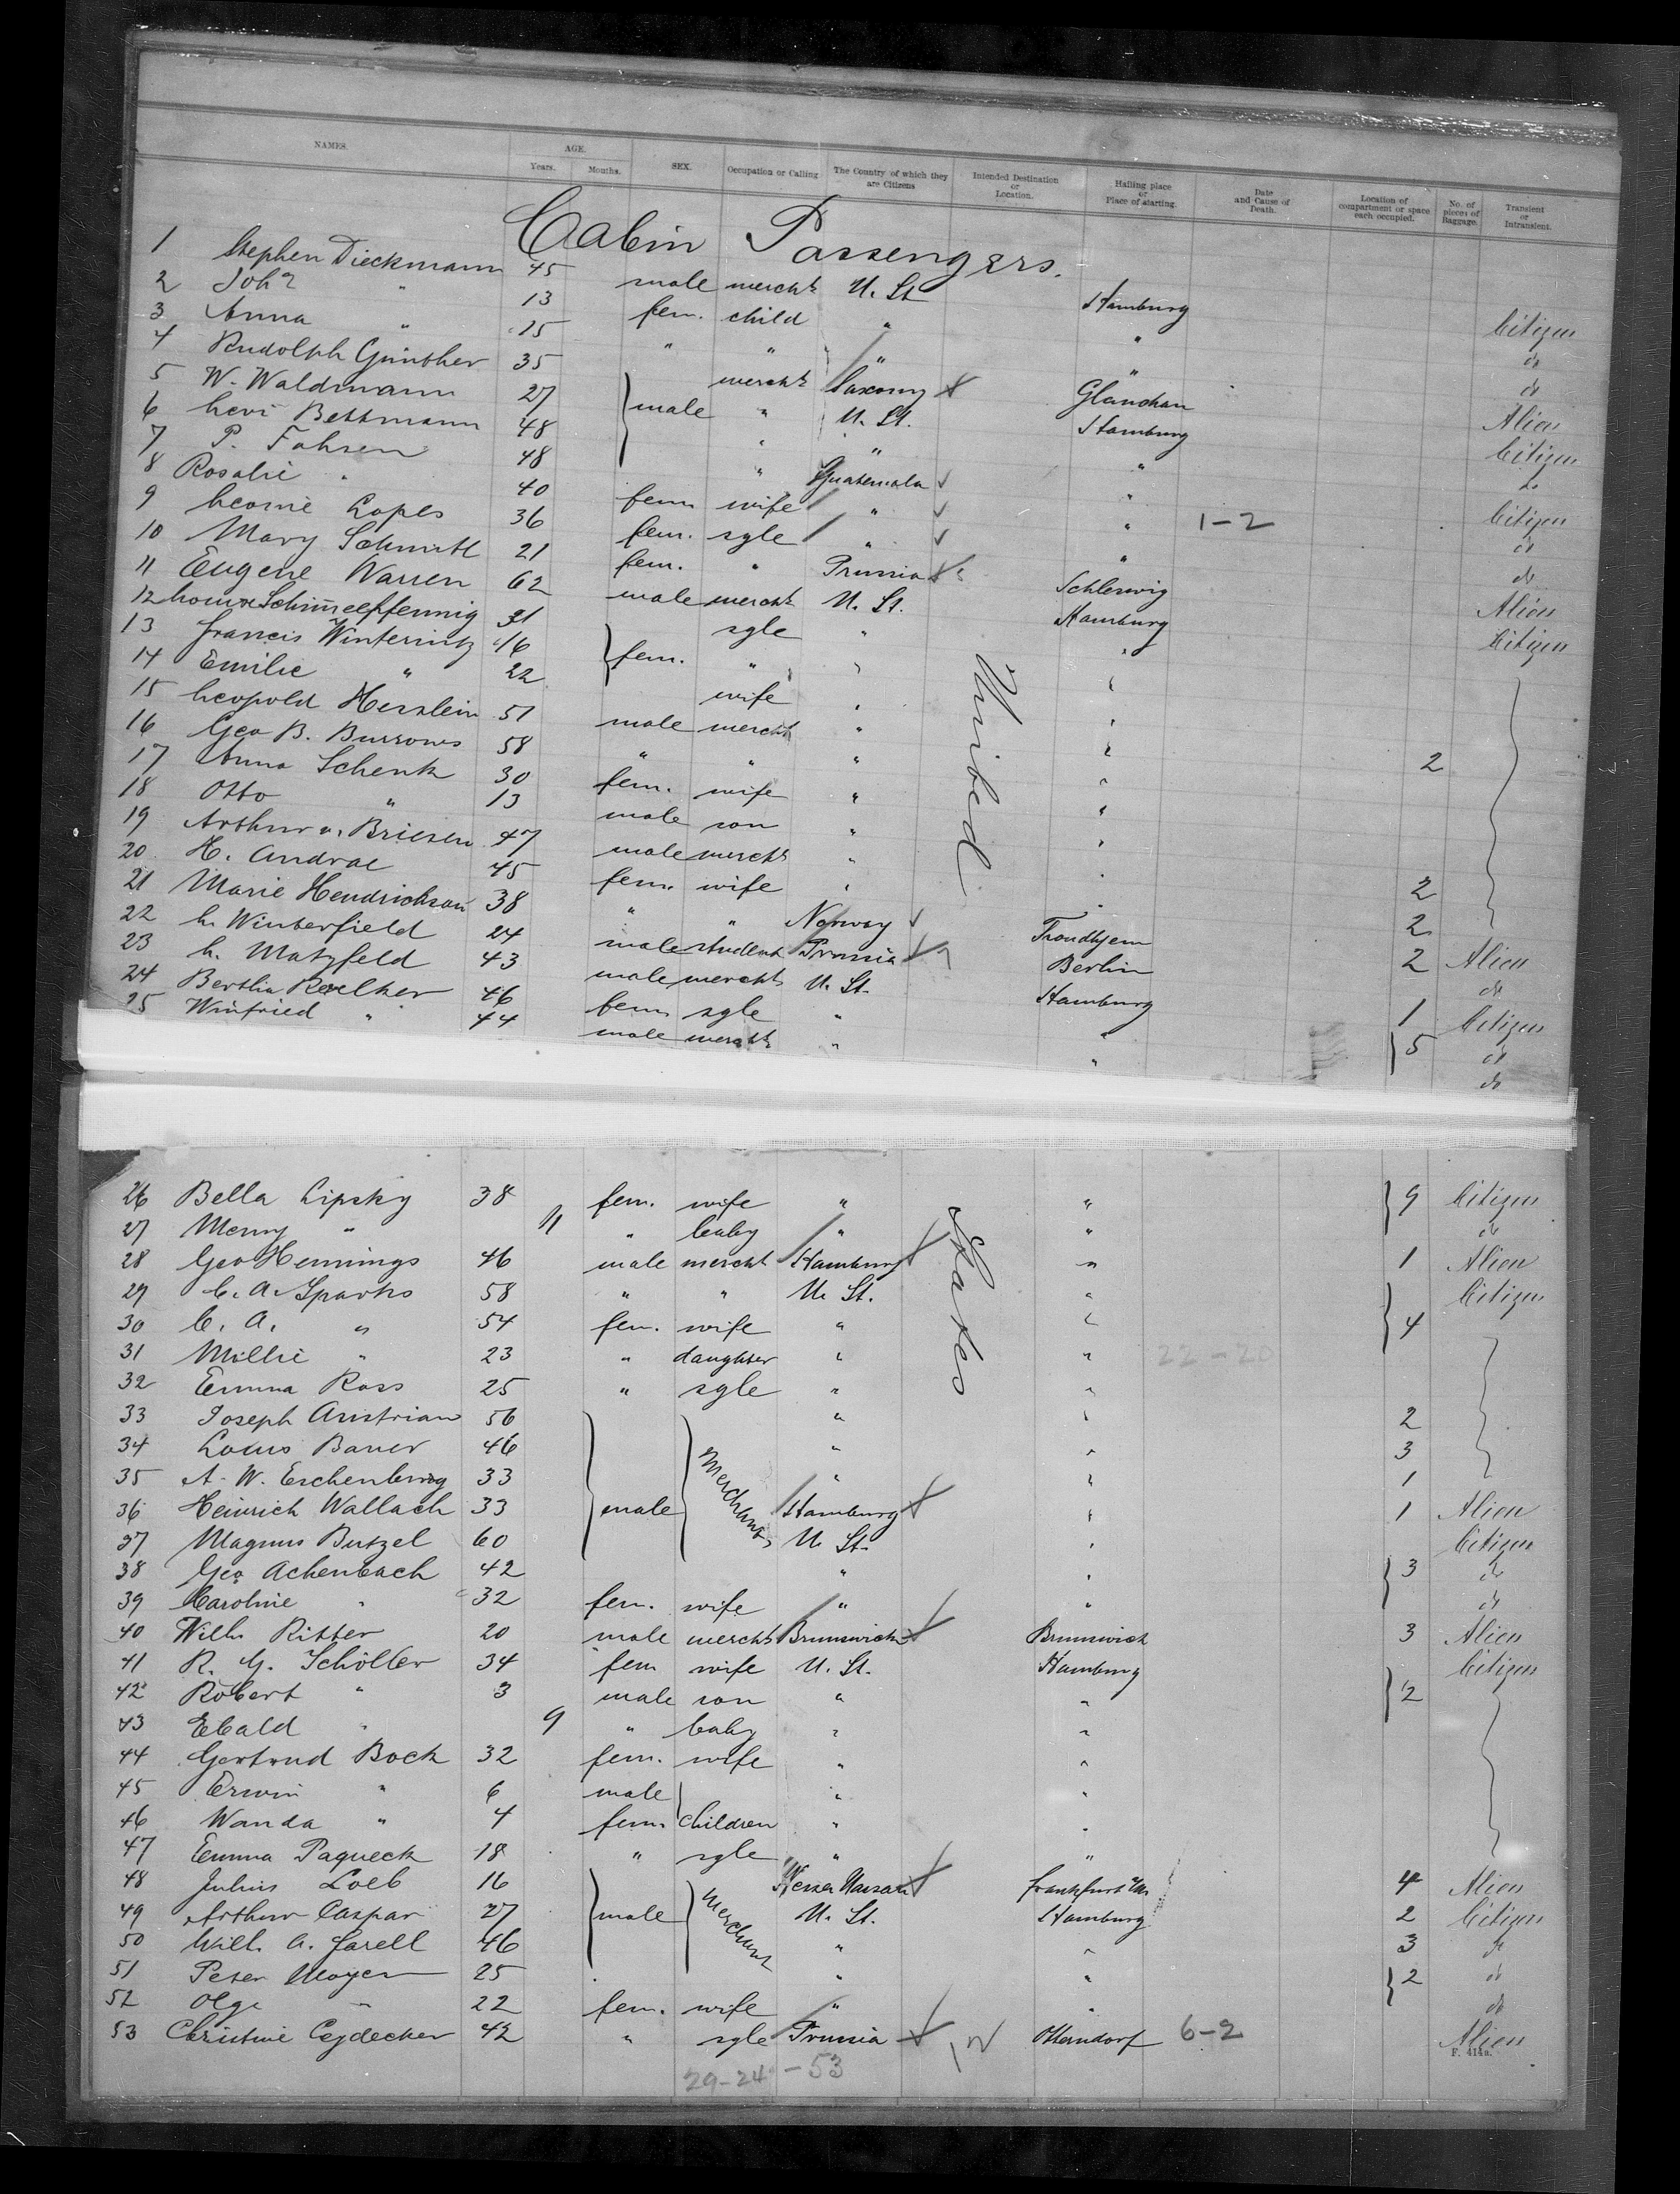 NAMES. AGE. Years. Months. SEX. Occupation or Calling The Country of which they are Citizens Intended Destination or Location. Hailing place or Place of starting. Date and Cause of Death. Location of compartment or space each occupied. No. of pieces of Baggage. Transient or Intransient.
Cabin Passengers.
1 Stephen Dieckmann 45 male mercht U. St. Hamburg Citizen
2 " 13 fem. child " " do
3 Anna " 15 " " " " do
4 Rudolph Günther 35 mercht Saxony Glauchau Alien
5 W. Waldmann 27 male " U. St. Hamburg Citizen
6 Levi Bettmann 48 " " " do
7 P. Fahsen 48 " Guatemala " Citizen
8 Rosalie " 40 fem. wife " " 1-2 do
9 Leonie Lopes 36 fem. sgle " " do
10 Mary Schmitt 21 fem. " Prussia Schleswig Alien
11 Eugene Warren 62 male mercht U. St. Hamburg Citizen
12 Schimmelpfennig 21 sgle " "
13 Francis Winternitz 46 fem. " " "
14 Emilie " 22 wife " "
15 Leopold Herzlein 51 male mercht " "
16 Geo B. Burrows 58 " " " " 2
17 Anna Schenk 30 fem. wife " "
18 Otto " 13 male son " "
19 Arthur v. Briesen 47 male mercht " "
20 H. Andrae 45 fem. wife " " 2
21 Marie Hendrichson 38 " " Norway Trondhjem 2 Alien
22 L. Winterfield 24 male student Prussia Berlin 2 do
23 L. Matzfeld 43 male mercht U. St. Hamburg 1 Citizen
24 Bertha 46 fem. sgle " " 5 do
25 Winfried " 44 male mercht " " do
United
26 Bella Lipsky 38 fem. wife " " 9 Citizen
27 Menny " 11 " baby " " do
28 Geo Hennings 46 male mercht Hamburg " 1 Alien
29 C. A. Sparks 58 " " U. St. " Citizen
30 C. A. " 54 fem. wife " " 4
31 Millie " 23 " daughter " " 22-20
32 Emma Ross 25 " sgle " "
33 Joseph Austrian 56 " " 2
34 Louis Bauer 46 " " 3
35 A. W. Eschenburg 33 " " 1
36 Heinrich Wallach 33 male Merchants Hamburg " 1 Alien
37 Magnus Butzel 60 U. St. " Citizen
38 Geo Achenbach 42 " " 3 do
39 Caroline " 32 fem. wife " " do
40 Wilh. Ritter 20 male mercht Brunswick Brunswick 3 Alien
41 R. G. Schöller 34 fem wife U. St. Hamburg Citizen
42 Robert " 3 male son " " 2
43 Ebald " 9 " baby " "
44 Gertrud Bock 32 fem. wife " "
45 Erwin " 6 male " "
46 Wanda " 4 fem. Children " "
47 Emma Paqueck 18 " sgle " "
48 Julius Loeb 16 Hessen Nassau Frankfurt a/M 4 Alien
49 Arthur Caspar 27 male Merchant U. St. Hamburg 2 Citizen
50 Wilh. A. Farell 46 " " 3 do
51 Peter Moyer 25 " " 2 do
52 Olga " 22 fem. wife " " do
53 Christine 42 " sgle Prussia Otterndorf 6-2 Alien
States
29-24 -53
F. 414a.